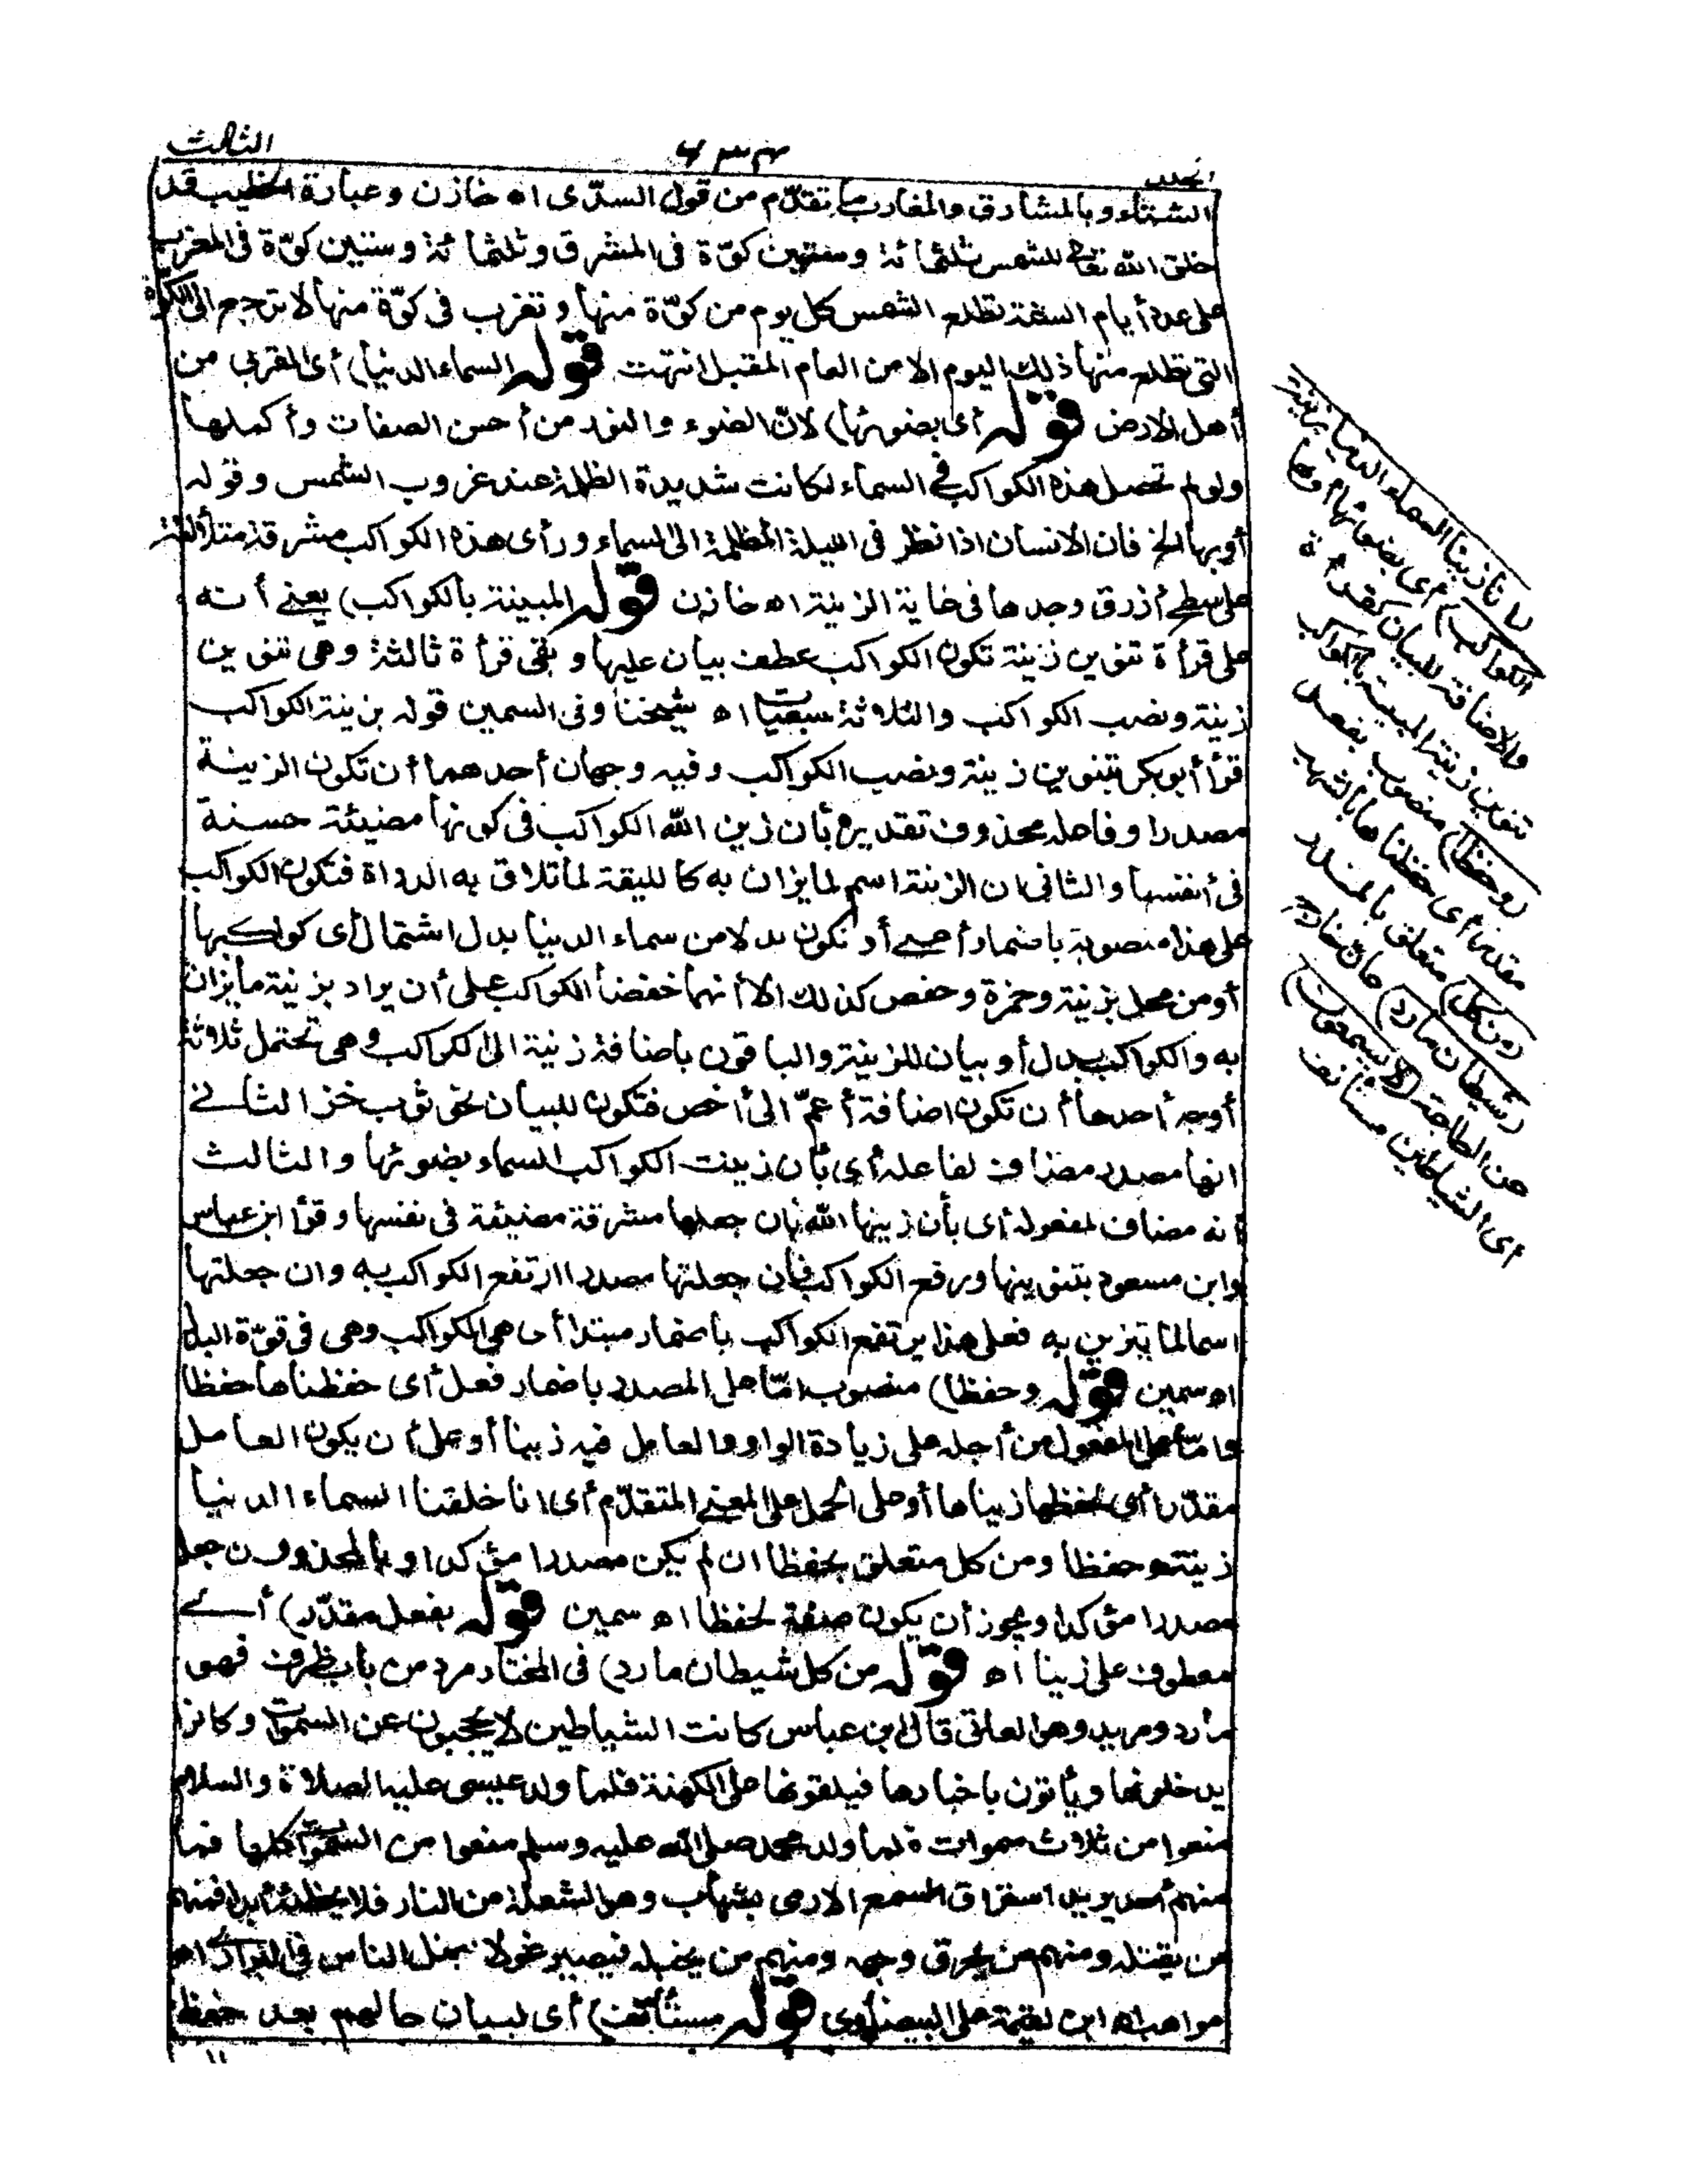 الجلد ٦٣٤ الثالث
الشتاء وبالمشارق والمغارب ما تقدّم من قول السدّى اه خازن وعبارة الخطيب قد
خلق الله تعالى للشمس ثلثمائة وستين كوّة فى المشرق وثلثمائة وستين كوّة فى المغرب
على عدد أيام السنة تطلع الشمس كل يوم من كوّة منها وتغرب فى كوّة منها لا ترجع الى الكوّة
التى تطلع منها ذلك اليوم الا من العام المقبل انتهت قوله السماء الدنيا) أى القربى من
أهل الارض قوله أى بضوئها) لانّ الضوء والنور من أحسن الصفات وأكملها
ولو لم تحصل هذه الكواكب فى السماء لكانت شديدة الظلمة عند غروب الشمس وقوله
أو بها الخ فان الانسان اذا نظر فى الليلة المظلمة الى السماء ورأى هذه الكواكب مشرقة متلألئة
على سطح أزرق وجدها فى غاية الزينة اه خازن قوله المبينة بالكواكب) يعنى أنه
على قرأة تنوين زينة تكون الكواكب عطف بيان عليها وبقى قرأة ثالثة وهى تنوين
زينة ونصب الكواكب والثلاثة سبعيات اه شيخنا وفى السمين قوله بزينة الكواكب
قرأ أبو بكر بتنوين زينة ونصب الكواكب وفيه وجهان أحدهما أن تكون الزينة
مصدرا وفاعله محذوف تقديره بأن زين الله الكواكب فى كونها مضيئة حسنة
فى أنفسها والثانى ان الزينة اسم لما يزان به كالليقة لما تلاق به الدواة فتكون الكواكب
على هذا منصوبة باضمار أعنى أو تكون بدلا من سماء الدنيا بدل اشتمال أى كواكبها
أو من محل بزينة وحمزة وحفص كذلك الا أنهما خفضا الكواكب على أن يراد بزينة ما يزان
به والكواكب بدل أو بيان للزينة والباقون باضافة زينة الى الكواكب وهى تحتمل ثلاثة
أوجه أحدها أن تكون اضافة أعمّ الى أخص فتكون للبيان نحو ثوب خز الثانى
انها مصدر مضاف لفاعله أى بأن زينت الكواكب السماء بضوئها والثالث
أنه مضاف لمفعوله أى بأن زينها الله بان جعلها مشرقة مضيئة فى نفسها وقرأ ابن عباس
وابن مسعود بتنوينها ورفع الكواكب فان جعلتها مصدرا ارتفع الكواكب به وان جعلتها
اسما لما يتزين به فعلى هذا يرتفع الكواكب باضمار مبتدا أى هى الكواكب وهى فى قوّة البدل
اه سمين قوله وحفظا) منصوب امّا على المصدر باضمار فعل أى حفظناها حفظا
وامّا على المفعول من أجله على زيادة الواو والعامل فيه زينا أو على أن يكون العامل
مقدّرا أى لحفظها زيناها أو على الحمل على المعنى المتقدّم أى انا خلقنا السماء الدنيا
زينة وحفظا ومن كل متعلق بحفظا ان لم يكن مصدرا مؤكدا وبالمحذوف ن جعل
مصدرا مؤكدا ويجوز أن يكون صفة لحفظا اه سمين قوله بفعل مقدّر) أى
معطوف على زينا اه قوله من كل شيطان مارد) فى المختار مرد من باب ظرف فهو
مارد ومريد وهو العاتى قال ابن عباس كانت الشياطين لا يحجبون عن السموات وكانوا
يدخلونها ويأتون باخبارها فيلقونها على الكهنة فلما ولد عيسى عليه الصلاة والسلام
منعوا من ثلاث سموات فلما ولد محمد صلى الله عليه وسلم منعوا من السموات كلها فما
منهم أحد يريد استراق السمع الا رمى بشهاب وهو الشعلة من النار فلا يخطئه أبدا فمنهم
من يقتله ومنهم من يحرق وجهه ومنهم من يخبله فيصير غولا يضل الناس فى البرارى اه
مواهب اه ابن لقيمة على البيضاوى قوله مستأنف) أى لبيان حالهم بعد حفظ
(انا زينا السماء الدنيا بزينة
الكواكب) أى بضوئها أو بها
والاضافة للبيان كقرأة
تنوين زينة المبينة بالكواكب
(وحفظا) منصوب بفعل
مقدر أى حفظناها بالشهب
(من كل) متعلق بالمقدر
(شيطان مارد) عات خارج
عن الطاعة (لا يسمعون)
أى الشياطين مستأنف